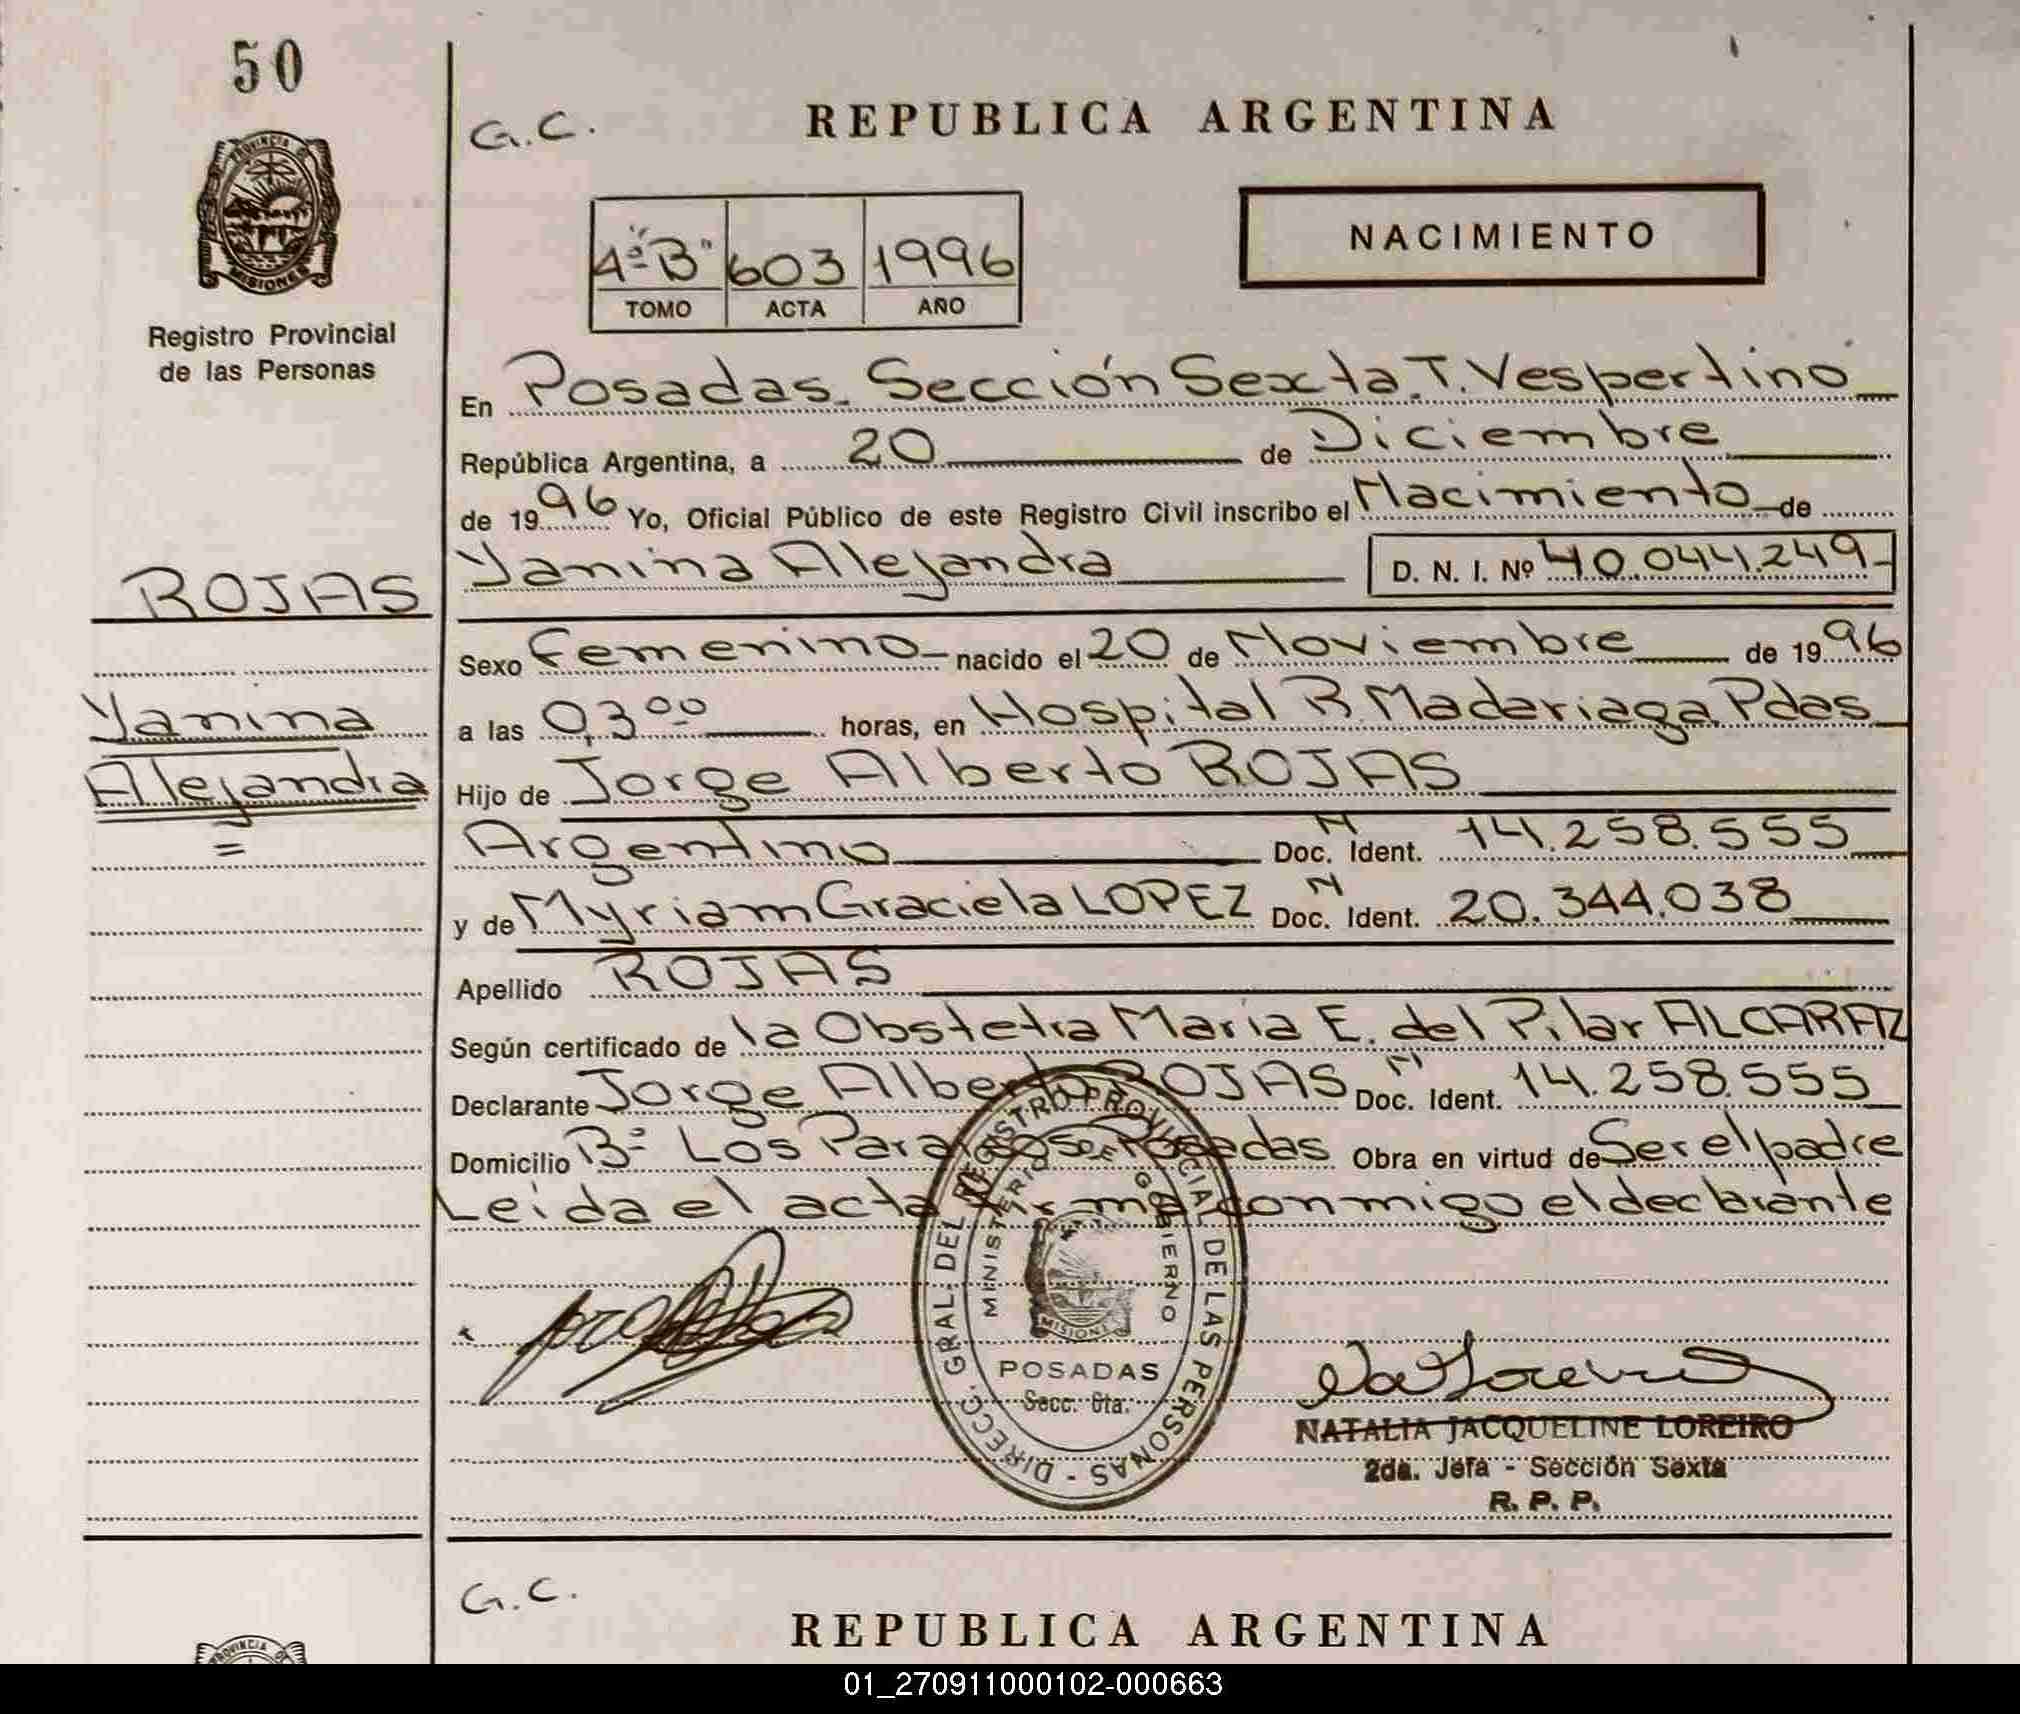 50
G.C.
REPUBLICA ARGENTINA
PROVINCIA DE
MISIONES
Registro Provincial
de las Personas
NACIMIENTO
4º "B" 603 1996
TOMO ACTA AÑO
En Posadas. Sección Sexta. T. Vespertino
República Argentina, a 20 de Diciembre
de 1996 Yo, Oficial Público de este Registro Civil inscribo el Nacimiento de
Yanina Alejandra D. N. I. Nº 40.044.249-
ROJAS
Yanina
Alejandra
=
Sexo Femenino nacido el 20 de Noviembre de 1996
a las 0,3 00 horas, en Hospital R. Madariaga Pdas
Hijo de Jorge Alberto ROJAS
Argentino Doc. N Ident. 14.258.555
y de Myriam Graciela LOPEZ Doc. N Ident. 20.344.038
Apellido ROJAS
Según certificado de la Obstetra Maria E. del Pilar ALCARAZ
Declarante Jorge Alberto ROJAS Doc. N Ident. 14.258.555
Domicilio Bº Los Posadas Obra en virtud de Ser el padre
Leída el acta firma conmigo el declarante
DIRECC. GRAL. DEL REGISTRO PROVINCIAL DE LAS PERSONAS -
MINISTERIO DE GOBIERNO
MISIONES
POSADAS
Secc. 6ta.
NATALIA JACQUELINE LOREIRO
2da. Jefa - Sección Sexta
R. P. P.
G.C.
REPUBLICA ARGENTINA
PROVINCIA
01_270911000102-000663